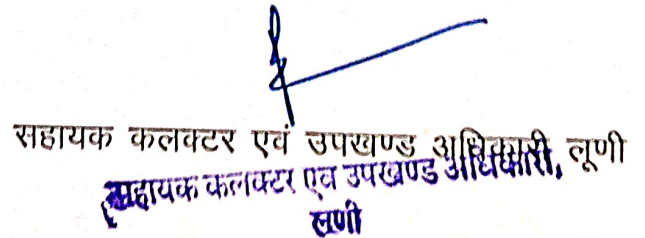 सहायक कलक्टर एवं उपखण्ड अधिकारी, लूणी
सहायक कलक्टर एव उपखण्ड अधिकारी,
लूणी